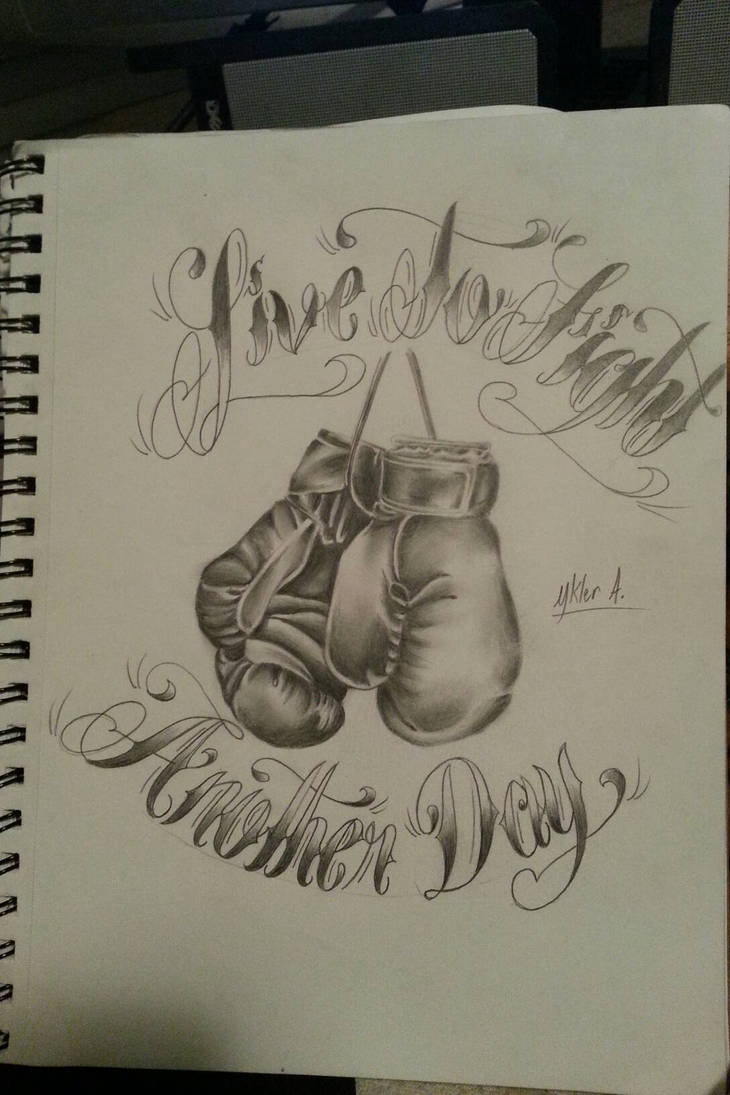 Live To Fight
Ykler A.
Another Day